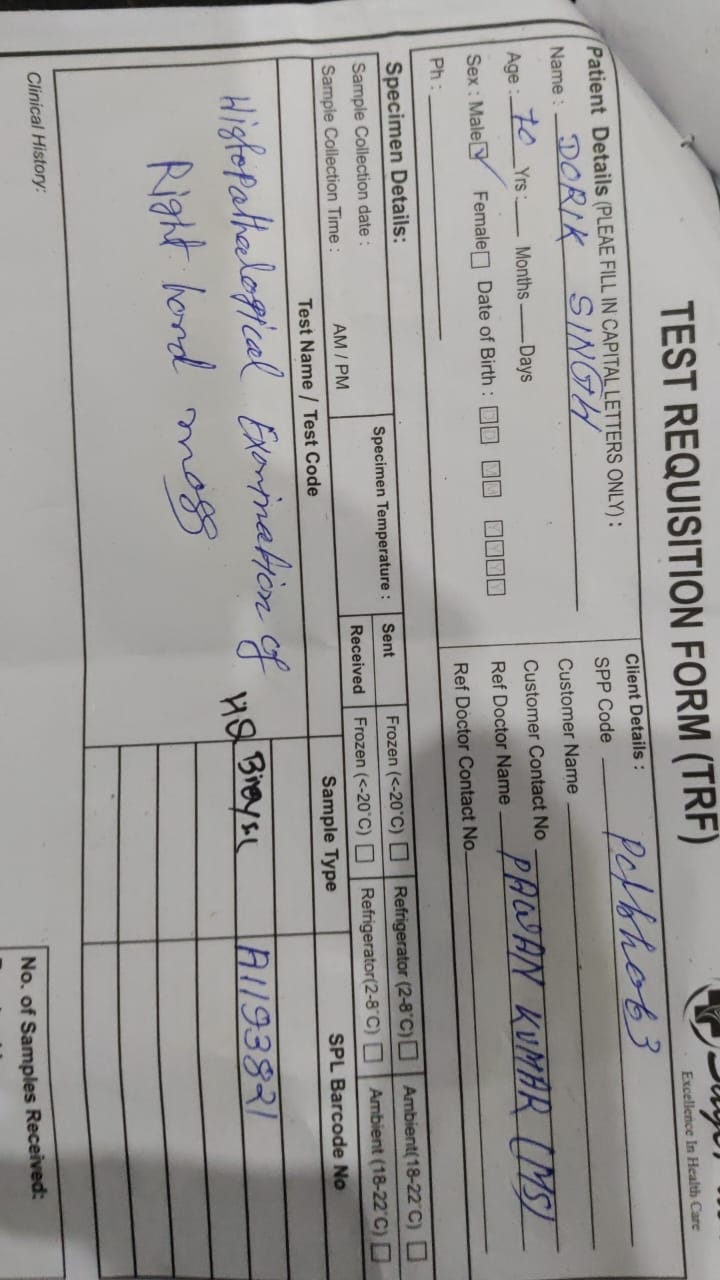 Excellence In Health Care
TEST REQUISITION FORM (TRF)
Patient Details (PLEAE FILL IN CAPITAL LETTERS ONLY) :
Name : DORIK SINGH
Age : 70 Yrs : Months Days
Sex : Male ✓ Female Date of Birth : D D M M Y Y Y Y
Ph :
Client Details :
SPP Code
Customer Name
Customer Contact No
Ref Doctor Name PAWAN KUMAR (MS)
Ref Doctor Contact No.
Specimen Details:
Sample Collection date :
Sample Collection Time : AM / PM
Specimen Temperature :
Sent Frozen (<-20°C) Refrigerator (2-8°C) Ambient(18-22°C)
Received Frozen (<-20°C) Refrigerator(2-8°C) Ambient (18-22°C)
Test Name / Test Code Sample Type SPL Barcode No
Histopathological Examination of A1193821
Right hand mass
Clinical History:
No. of Samples Received: